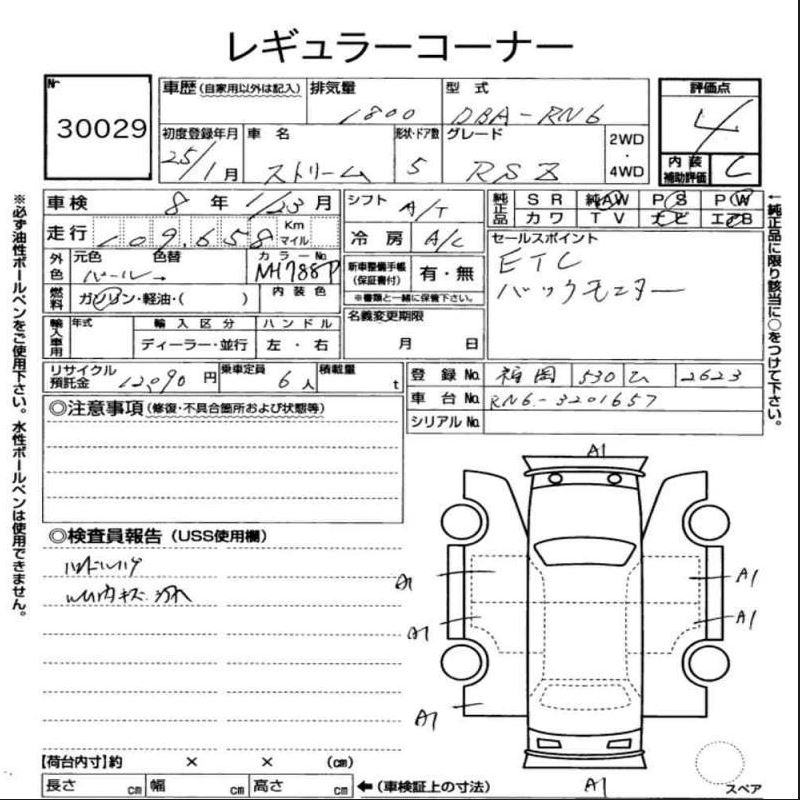 レギュラーコーナー
Nr 30029
車歴 (自家用以外は記入) 排気量 1800 型式 DBA-RN6
初度登録年月 25/1月 車名 ストリーム 形状・ドア数 5 グレード RSZ 2WD・4WD
評価点 4
内装補助評価 C
車検 8年 1/23月
走行 109,658 Km マイル
シフト A/T
冷房 A/C
純正品 SR 純AW PS PW
カワ TV ナビ エアB
外色 元色 パール→ 色替 カラーNo NH788P
燃料 ガソリン・軽油・( ) 内装色
新車整備手帳(保証書付) 有・無
※書類と一緒に保管下さい。
セールスポイント
ETC
バックモニター
輸入車用 年式 輸入区分 ハンドル
ディーラー・並行 左・右
名義変更期限
月 日
リサイクル預託金 12,090円 乗車定員 6人 積載量 t
登録No. 福岡 530 ム 2623
車台No. RN6-3201657
シリアルNo.
◎注意事項 (修復・不具合箇所および状態等)
◎検査員報告 (USS使用欄)
ハンドルハゲ
A1
A1
A1
A1
A1
A1
A1
スペア
【荷台内寸】約 × × (cm)
長さ cm 幅 cm 高さ cm ←(車検証上の寸法)
※必ず油性ボールペンをご使用下さい。水性ボールペンは使用できません。
←純正品に限り該当に○をつけて下さい。